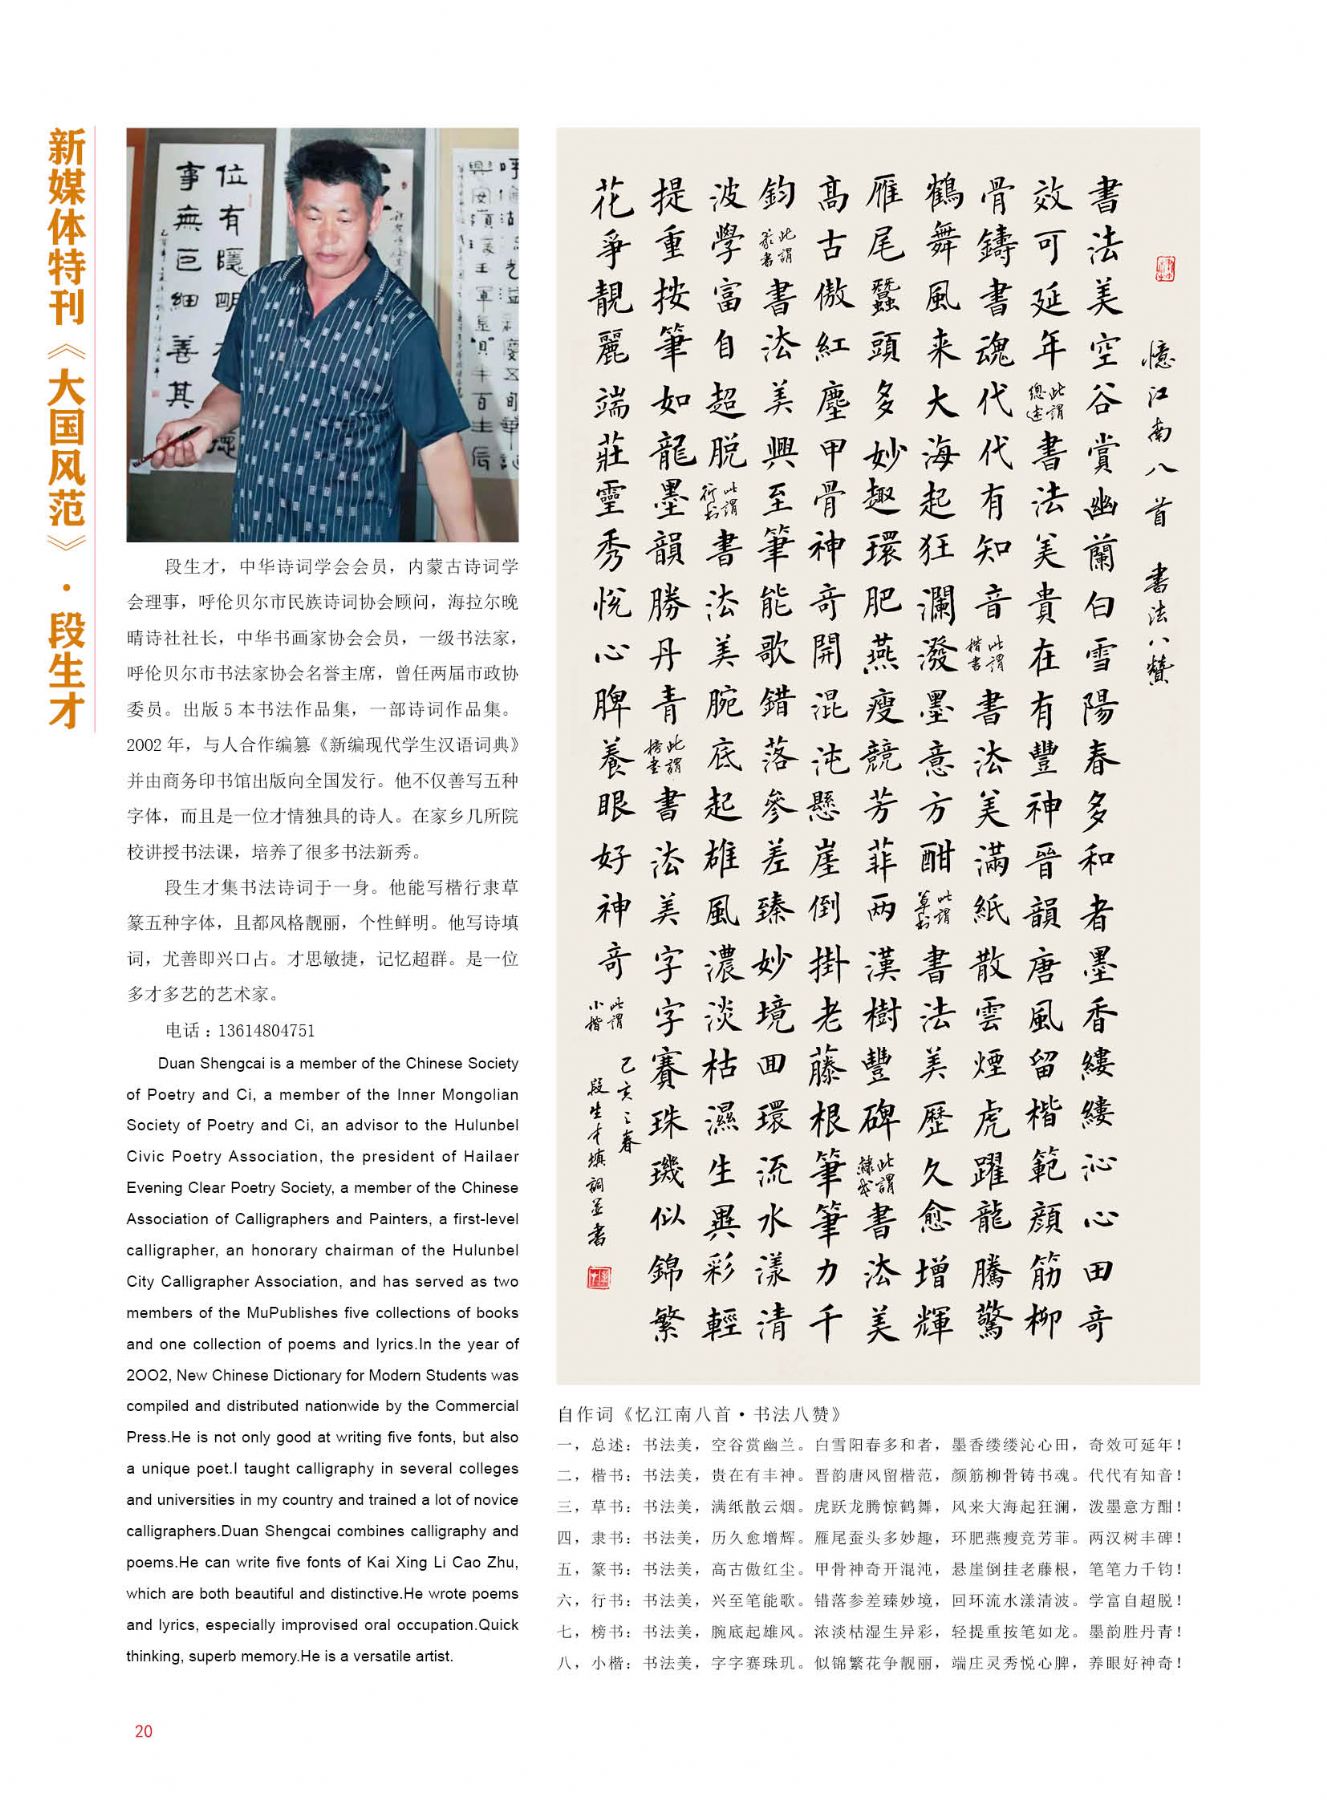 新媒体特刊《大国风范》·段生才
位有隱明
事無巨細善其
段生才，中华诗词学会会员，内蒙古诗词学
会理事，呼伦贝尔市民族诗词协会顾问，海拉尔晚
晴诗社社长，中华书画家协会会员，一级书法家，
呼伦贝尔市书法家协会名誉主席，曾任两届市政协
委员。出版5本书法作品集，一部诗词作品集。
2002年，与人合作编纂《新编现代学生汉语词典》
并由商务印书馆出版向全国发行。他不仅善写五种
字体，而且是一位才情独具的诗人。在家乡几所院
校讲授书法课，培养了很多书法新秀。
段生才集书法诗词于一身。他能写楷行隶草
篆五种字体，且都风格靓丽，个性鲜明。他写诗填
词，尤善即兴口占。才思敏捷，记忆超群。是一位
多才多艺的艺术家。
电话：13614804751
Duan Shengcai is a member of the Chinese Society
of Poetry and Ci, a member of the Inner Mongolian
Society of Poetry and Ci, an advisor to the Hulunbel
Civic Poetry Association, the president of Hailaer
Evening Clear Poetry Society, a member of the Chinese
Association of Calligraphers and Painters, a first-level
calligrapher, an honorary chairman of the Hulunbel
City Calligrapher Association, and has served as two
members of the MuPublishes five collections of books
and one collection of poems and lyrics.In the year of
2OO2, New Chinese Dictionary for Modern Students was
compiled and distributed nationwide by the Commercial
Press.He is not only good at writing five fonts, but also
a unique poet.I taught calligraphy in several colleges
and universities in my country and trained a lot of novice
calligraphers.Duan Shengcai combines calligraphy and
poems.He can write five fonts of Kai Xing Li Cao Zhu,
which are both beautiful and distinctive.He wrote poems
and lyrics, especially improvised oral occupation.Quick
thinking, superb memory.He is a versatile artist.
憶江南八首 書法八贊
書法美空谷賞幽蘭白雪陽春多和者墨香縷縷沁心田奇
效可延年此謂總述書法美貴在有豐神晉韻唐風留楷範顏筋柳
骨鑄書魂代代有知音此謂楷書書法美滿紙散雲煙虎躍龍騰驚
鶴舞風来大海起狂瀾潑墨意方酣此謂草書書法美歷久愈增輝
雁尾蠶頭多妙趣環肥燕瘦競芳菲兩漢樹豐碑此謂隸書書法美
高古傲紅塵甲骨神奇開混沌懸崖倒掛老藤根筆筆力千
鈞此謂篆書書法美興至筆能歌錯落參差臻妙境回環流水漾清
波學富自超脱此謂行书書法美腕底起雄風濃淡枯濕生異彩輕
提重按筆如龍墨韻勝丹青此謂榜書書法美字字賽珠璣似錦繁
花爭靚麗端莊靈秀悦心脾養眼好神奇此謂小楷
己亥之春
段生才填詞並書
自作词《忆江南八首·书法八赞》
一，总述：书法美，空谷赏幽兰。白雪阳春多和者，墨香缕缕沁心田，奇效可延年！
二，楷书：书法美，贵在有丰神。晋韵唐风留楷范，颜筋柳骨铸书魂。代代有知音！
三，草书：书法美，满纸散云烟。虎跃龙腾惊鹤舞，风来大海起狂澜，泼墨意方酣！
四，隶书：书法美，历久愈增辉。雁尾蚕头多妙趣，环肥燕瘦竞芳菲。两汉树丰碑！
五，篆书：书法美，高古傲红尘。甲骨神奇开混沌，悬崖倒挂老藤根，笔笔力千钧！
六，行书：书法美，兴至笔能歌。错落参差臻妙境，回环流水漾清波。学富自超脱！
七，榜书：书法美，腕底起雄风。浓淡枯湿生异彩，轻提重按笔如龙。墨韵胜丹青！
八，小楷：书法美，字字赛珠玑。似锦繁花争靓丽，端庄灵秀悦心脾，养眼好神奇！
20